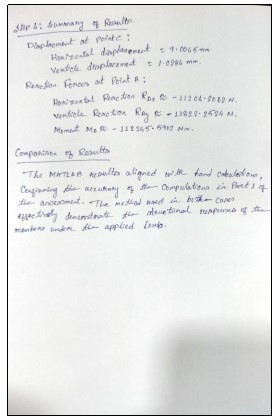 Step 5: Summary of Results
Displacement at Point C:
Horizontal displacement = 9.0045 mm
Verticle displacement = 1.0284 mm.
Reaction Forces at Point A:
Horizontal Reaction RAx ≈ -11204.2002 N.
Verticle Reaction RAy ≈ -13822.2534 N.
Moment MA ≈ -118245.5902 Nm.
Comparison of Results
The MATLAB results aligned with hand calculations,
Confirming the accuracy of the Computations in Part 1 of
the assessment. The method used in both cases
effectively demonstrate the structural responses of the
members under the applied loads.